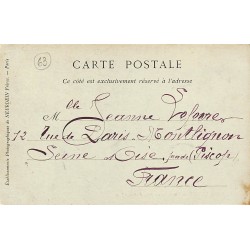 63
CARTE POSTALE
Ce côté est exclusivement réservé à l'adresse
Mlle Jeanne
12 rue de Paris Montlignon
Seine & Oise par (Piscop)
France
Etablissements Photographiques de NEURDEIN Frères. — Paris